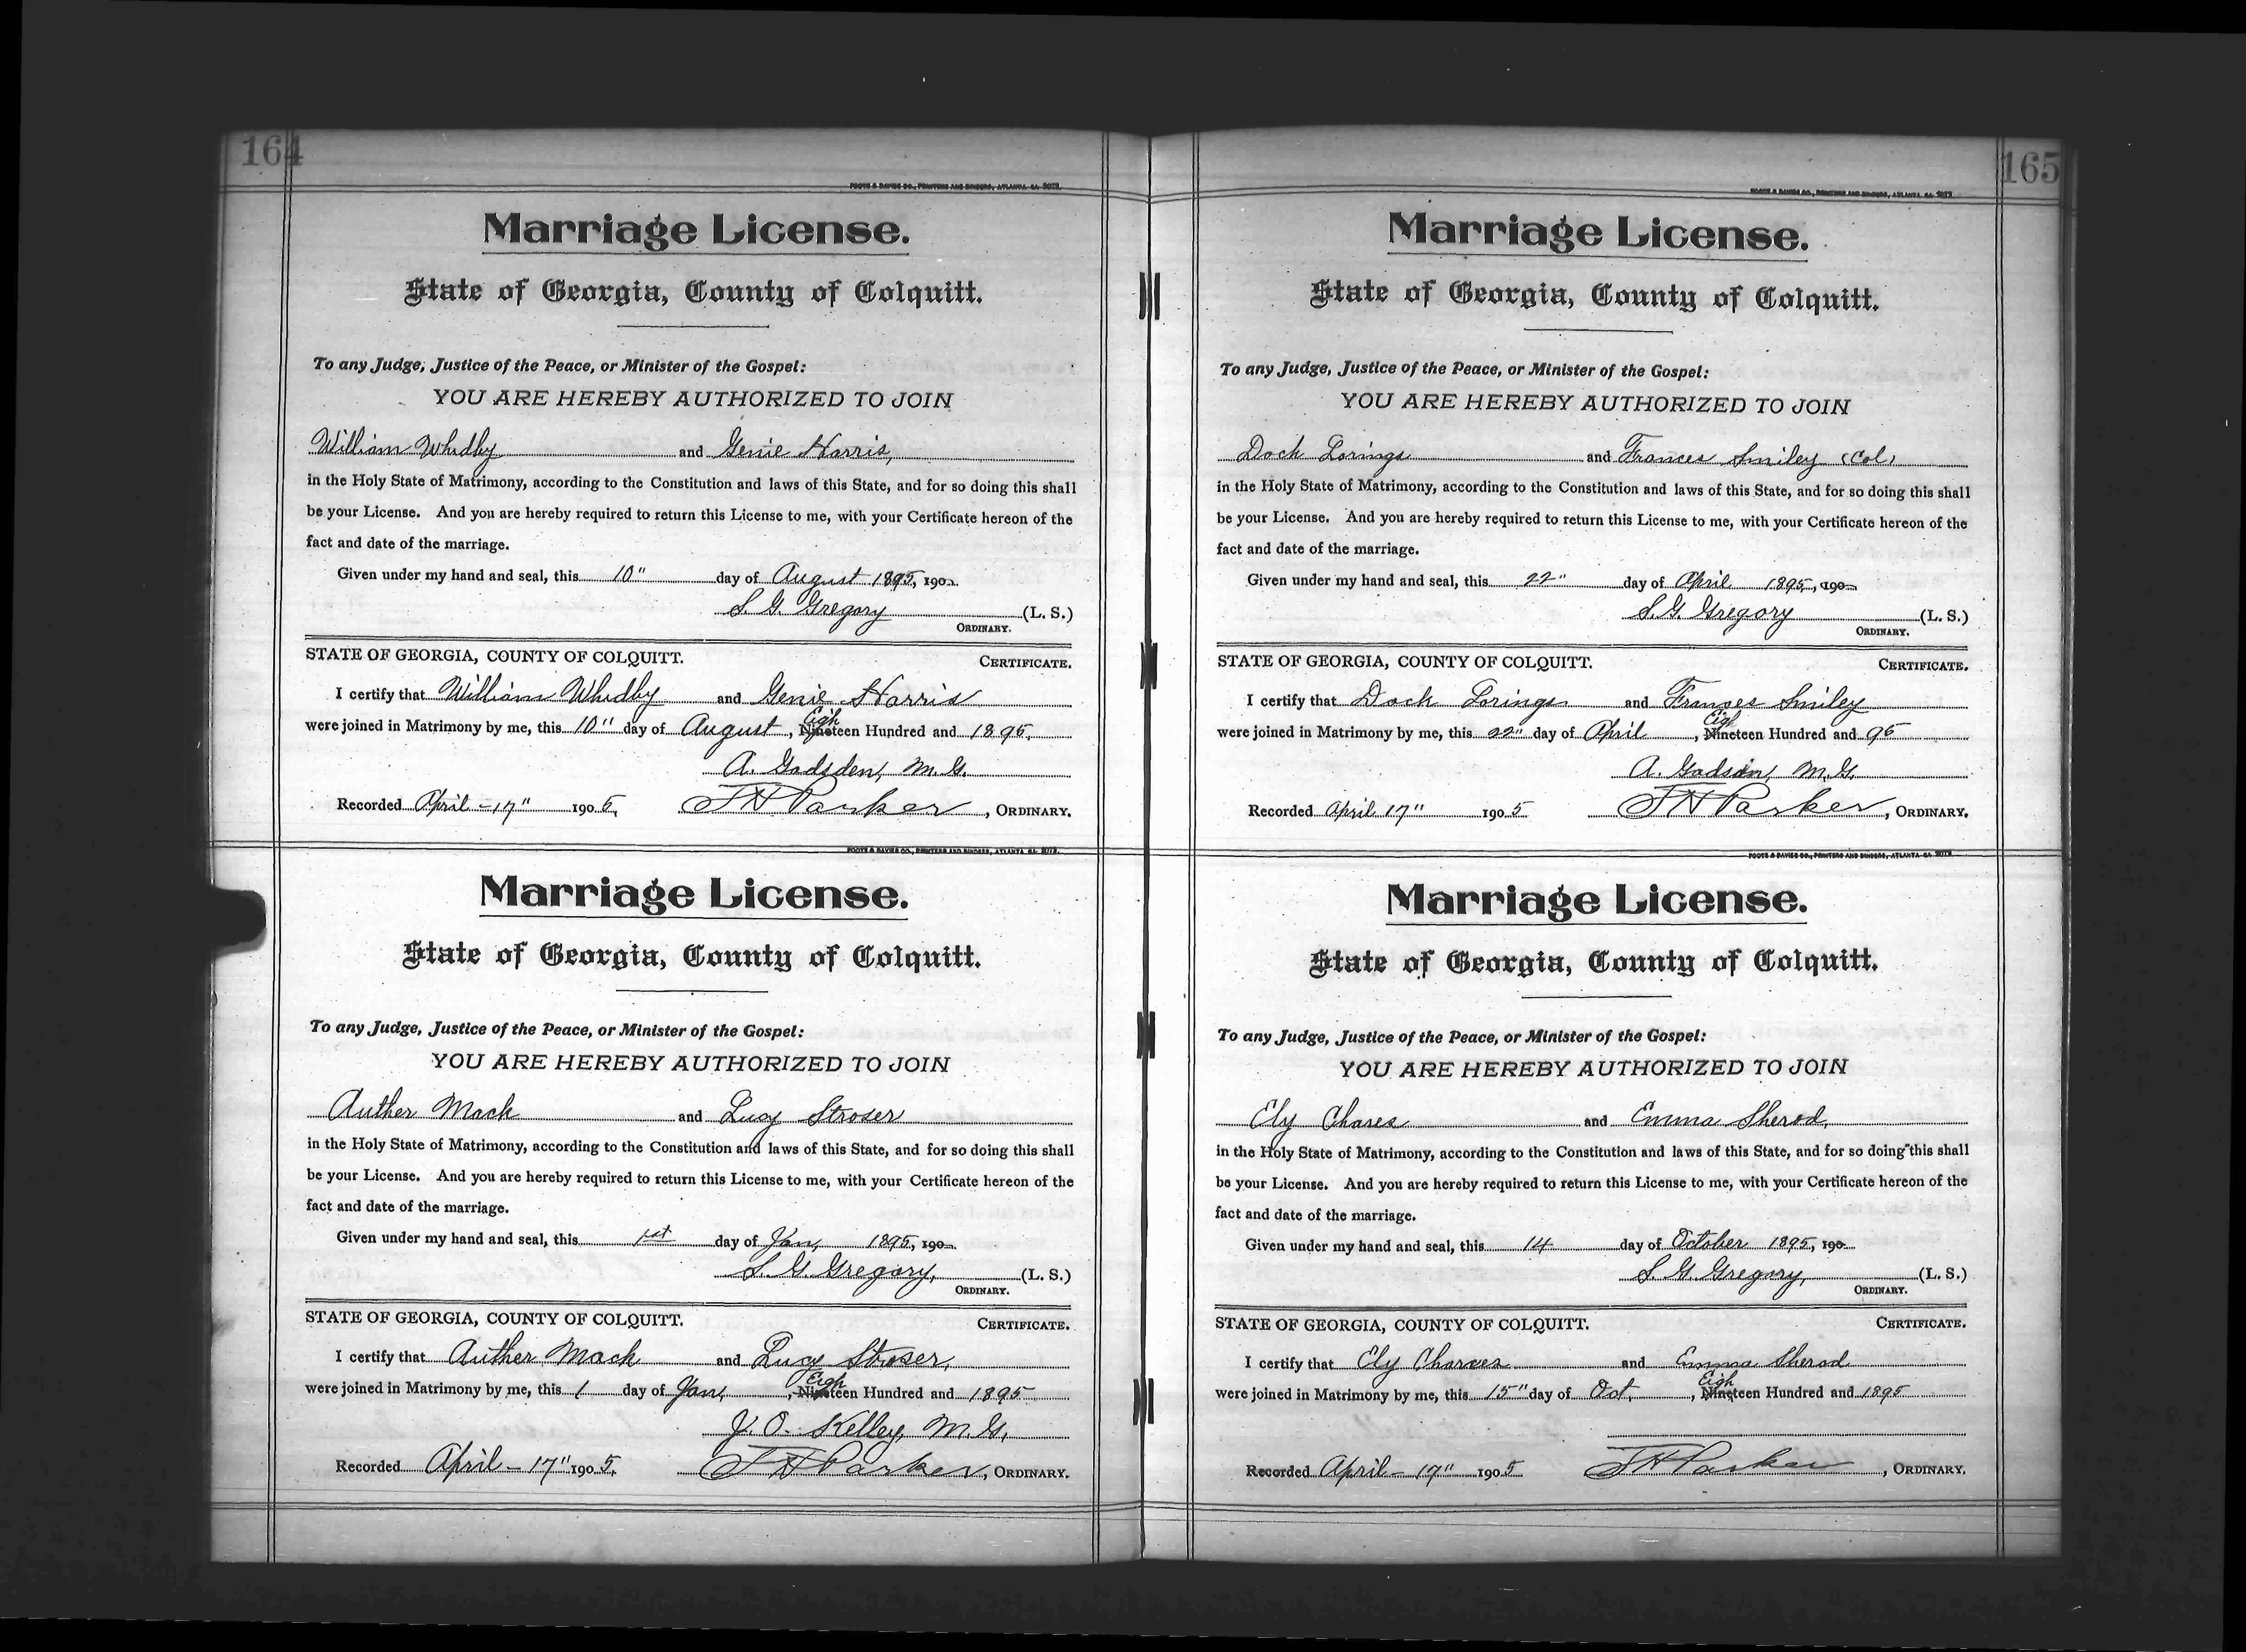 164
FOOTE & DAVIES CO., PRINTERS AND BINDERS, ATLANTA, GA.
Marriage License.
State of Georgia, County of Colquitt.
To any Judge, Justice of the Peace, or Minister of the Gospel:
YOU ARE HEREBY AUTHORIZED TO JOIN
William Whidby and Genie Harris,
in the Holy State of Matrimony, according to the Constitution and laws of this State, and for so doing this shall
be your License. And you are hereby required to return this License to me, with your Certificate hereon of the
fact and date of the marriage.
Given under my hand and seal, this 10" day of August 1895, 190
S. G. Gregory (L. S.)
ORDINARY.
STATE OF GEORGIA, COUNTY OF COLQUITT. CERTIFICATE.
I certify that William Whidby and Genie Harris
Eigh
were joined in Matrimony by me, this 10" day of August, Nineteen Hundred and 1895,
A. Gadsden, M.G.
Recorded April - 17" 1905, , ORDINARY.
FOOTE & DAVIES CO., PRINTERS AND BINDERS, ATLANTA, GA.
Marriage License.
State of Georgia, County of Colquitt.
To any Judge, Justice of the Peace, or Minister of the Gospel:
YOU ARE HEREBY AUTHORIZED TO JOIN
Auther Mack and Lucy Stroser
in the Holy State of Matrimony, according to the Constitution and laws of this State, and for so doing this shall
be your License. And you are hereby required to return this License to me, with your Certificate hereon of the
fact and date of the marriage.
Given under my hand and seal, this 1st day of Jan, 1895, 190
S. G. Gregory, (L. S.)
ORDINARY.
STATE OF GEORGIA, COUNTY OF COLQUITT. CERTIFICATE.
I certify that Auther Mack and Lucy Stroser,
Eigh
were joined in Matrimony by me, this 1 day of Jan, , Nineteen Hundred and 1895
J. O. Kelley, M.G.
Recorded April - 17" 1905, Parker, ORDINARY.
165
FOOTE & DAVIES CO., PRINTERS AND BINDERS, ATLANTA, GA.
Marriage License.
State of Georgia, County of Colquitt.
To any Judge, Justice of the Peace, or Minister of the Gospel:
YOU ARE HEREBY AUTHORIZED TO JOIN
Dock Lorings and Frances Smiley (Col)
in the Holy State of Matrimony, according to the Constitution and laws of this State, and for so doing this shall
be your License. And you are hereby required to return this License to me, with your Certificate hereon of the
fact and date of the marriage.
Given under my hand and seal, this 22" day of April 1895, 190
S. G. Gregory (L. S.)
ORDINARY.
STATE OF GEORGIA, COUNTY OF COLQUITT. CERTIFICATE.
I certify that Dock Lorings and Frances Smiley
Eigh
were joined in Matrimony by me, this 22" day of April , Nineteen Hundred and 95
A. Gadsden, M.G.
Recorded April 17" 1905 Parker, ORDINARY.
FOOTE & DAVIES CO., PRINTERS AND BINDERS, ATLANTA, GA.
Marriage License.
State of Georgia, County of Colquitt.
To any Judge, Justice of the Peace, or Minister of the Gospel:
YOU ARE HEREBY AUTHORIZED TO JOIN
Ely Chares and Emma Sherod,
in the Holy State of Matrimony, according to the Constitution and laws of this State, and for so doing this shall
be your License. And you are hereby required to return this License to me, with your Certificate hereon of the
fact and date of the marriage.
Given under my hand and seal, this 14 day of October 1895, 190
S. G. Gregory, (L. S.)
ORDINARY.
STATE OF GEORGIA, COUNTY OF COLQUITT. CERTIFICATE.
I certify that Ely Charves and Emma Sherod
Eigh
were joined in Matrimony by me, this 15" day of Oct, , Nineteen Hundred and 1895
Recorded April - 17" 1905 Parker, ORDINARY.